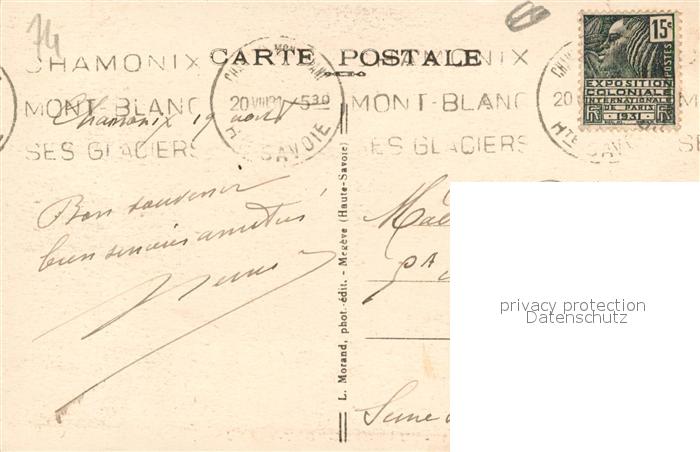 74
CHAMONIX
MONT-BLANC
SES GLACIERS
CARTE POSTALE
CHAMONIX MONT-BLANC
20 VIII 31 5 30
HTE SAVOIE
CHAMONIX
MONT-BLANC
SES GLACIERS
15c
POSTES
EXPOSITION
COLONIALE
INTERNATIONALE
DE PARIS
1931
HTE SAVOIE
SES
Chamonix 19 août
Bon souvenir
bien sincères amitiés
L. Morand, phot.-édit. - Megève (Haute-Savoie)
Seine
privacy protection
Datenschutz